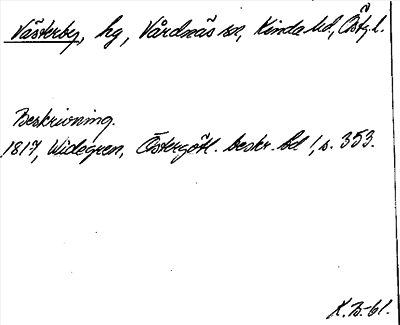 Västerby, hg, Vårdnäs sn, Kinda hd, Östg.l.
Beskrivning.
1817, Widegren, Östergötl. beskr. bd 1, s. 353.
K.B-61.